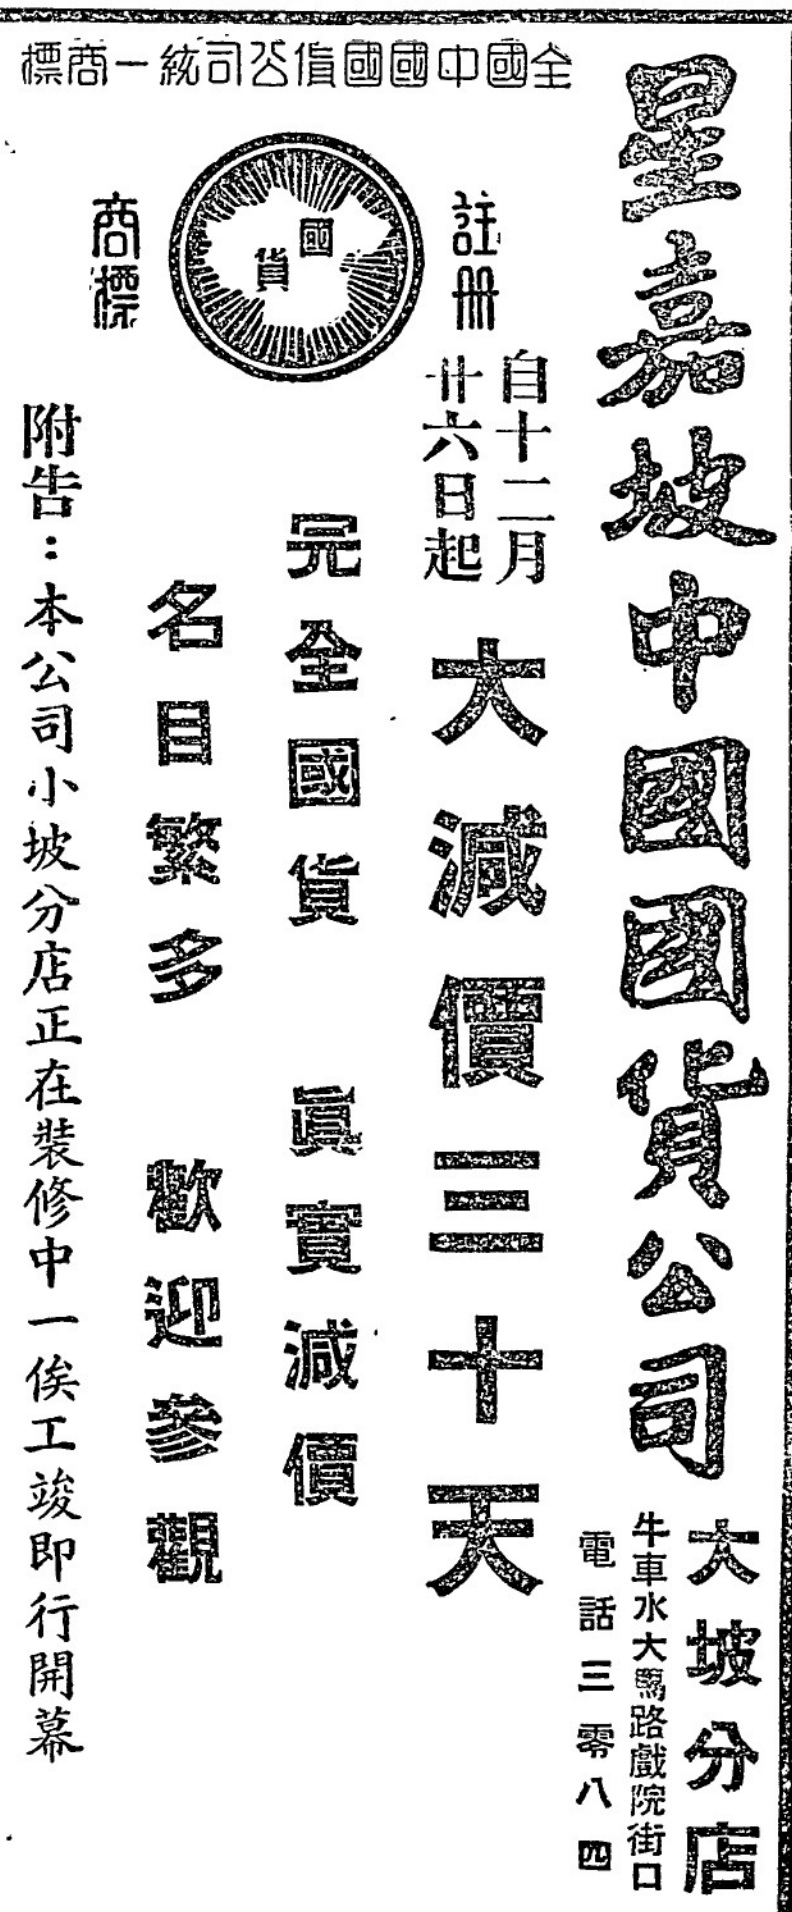 全國中國國貨公司統一商標
星嘉坡中國國貨公司
大坡分店
牛車水大馬路戲院街口
電話三零八四
註册
國貨
商標
自十二月
廿六日起
大減價三十天
完全國貨 眞實減價
名目繁多 歡迎參觀
附告：本公司小坡分店正在裝修中一俟工竣即行開幕